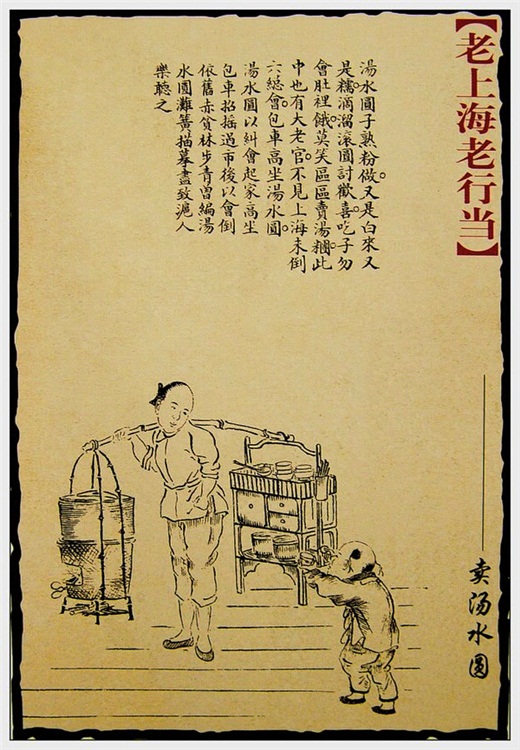 【老上海老行当】
湯水圓子熟粉做。又是白來又
是糯。滴溜滚圓討歡喜。吃子勿
會肚裡餓。莫笑區區賣湯糰。此
中也有大老官。不見上海未倒
六總會。包車高坐湯水圓。
湯水圓以糾會起家高坐
包車招摇過市後以會倒
依舊赤貧林步青曾編湯
水圓灘簧描摹盡致滬人
樂聽之
卖汤水圆